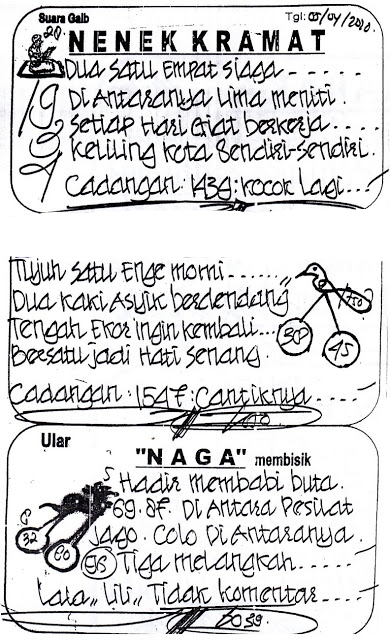 Suara Gaib
Tgl: 05/04/2010.
20
NENEK KRAMAT
Dua satu Empat siaga - - - - -
Di Antaranya lima meniti.
Setiap Hari Giat berkerja.....
Keliling kota Sendiri-Sendiri.
Cadangan: 1439: kocok lagi...
Tujuh satu Enge morni.......
Dua kaki Asyik berdendang
Tengah Ekor ingin kembali...
Bersatu jadi Hati senang.
50
45
Cadangan: 1547: Cantiknya....
Ular
"NAGA" membisik
Hadir membabi buta.
69. 87. Di Antara Pesilat
Jago. Colo Di Antaranya.
32
60
96
Tiga melangkah.....
Lala,, Lili,, Tidak komentar....